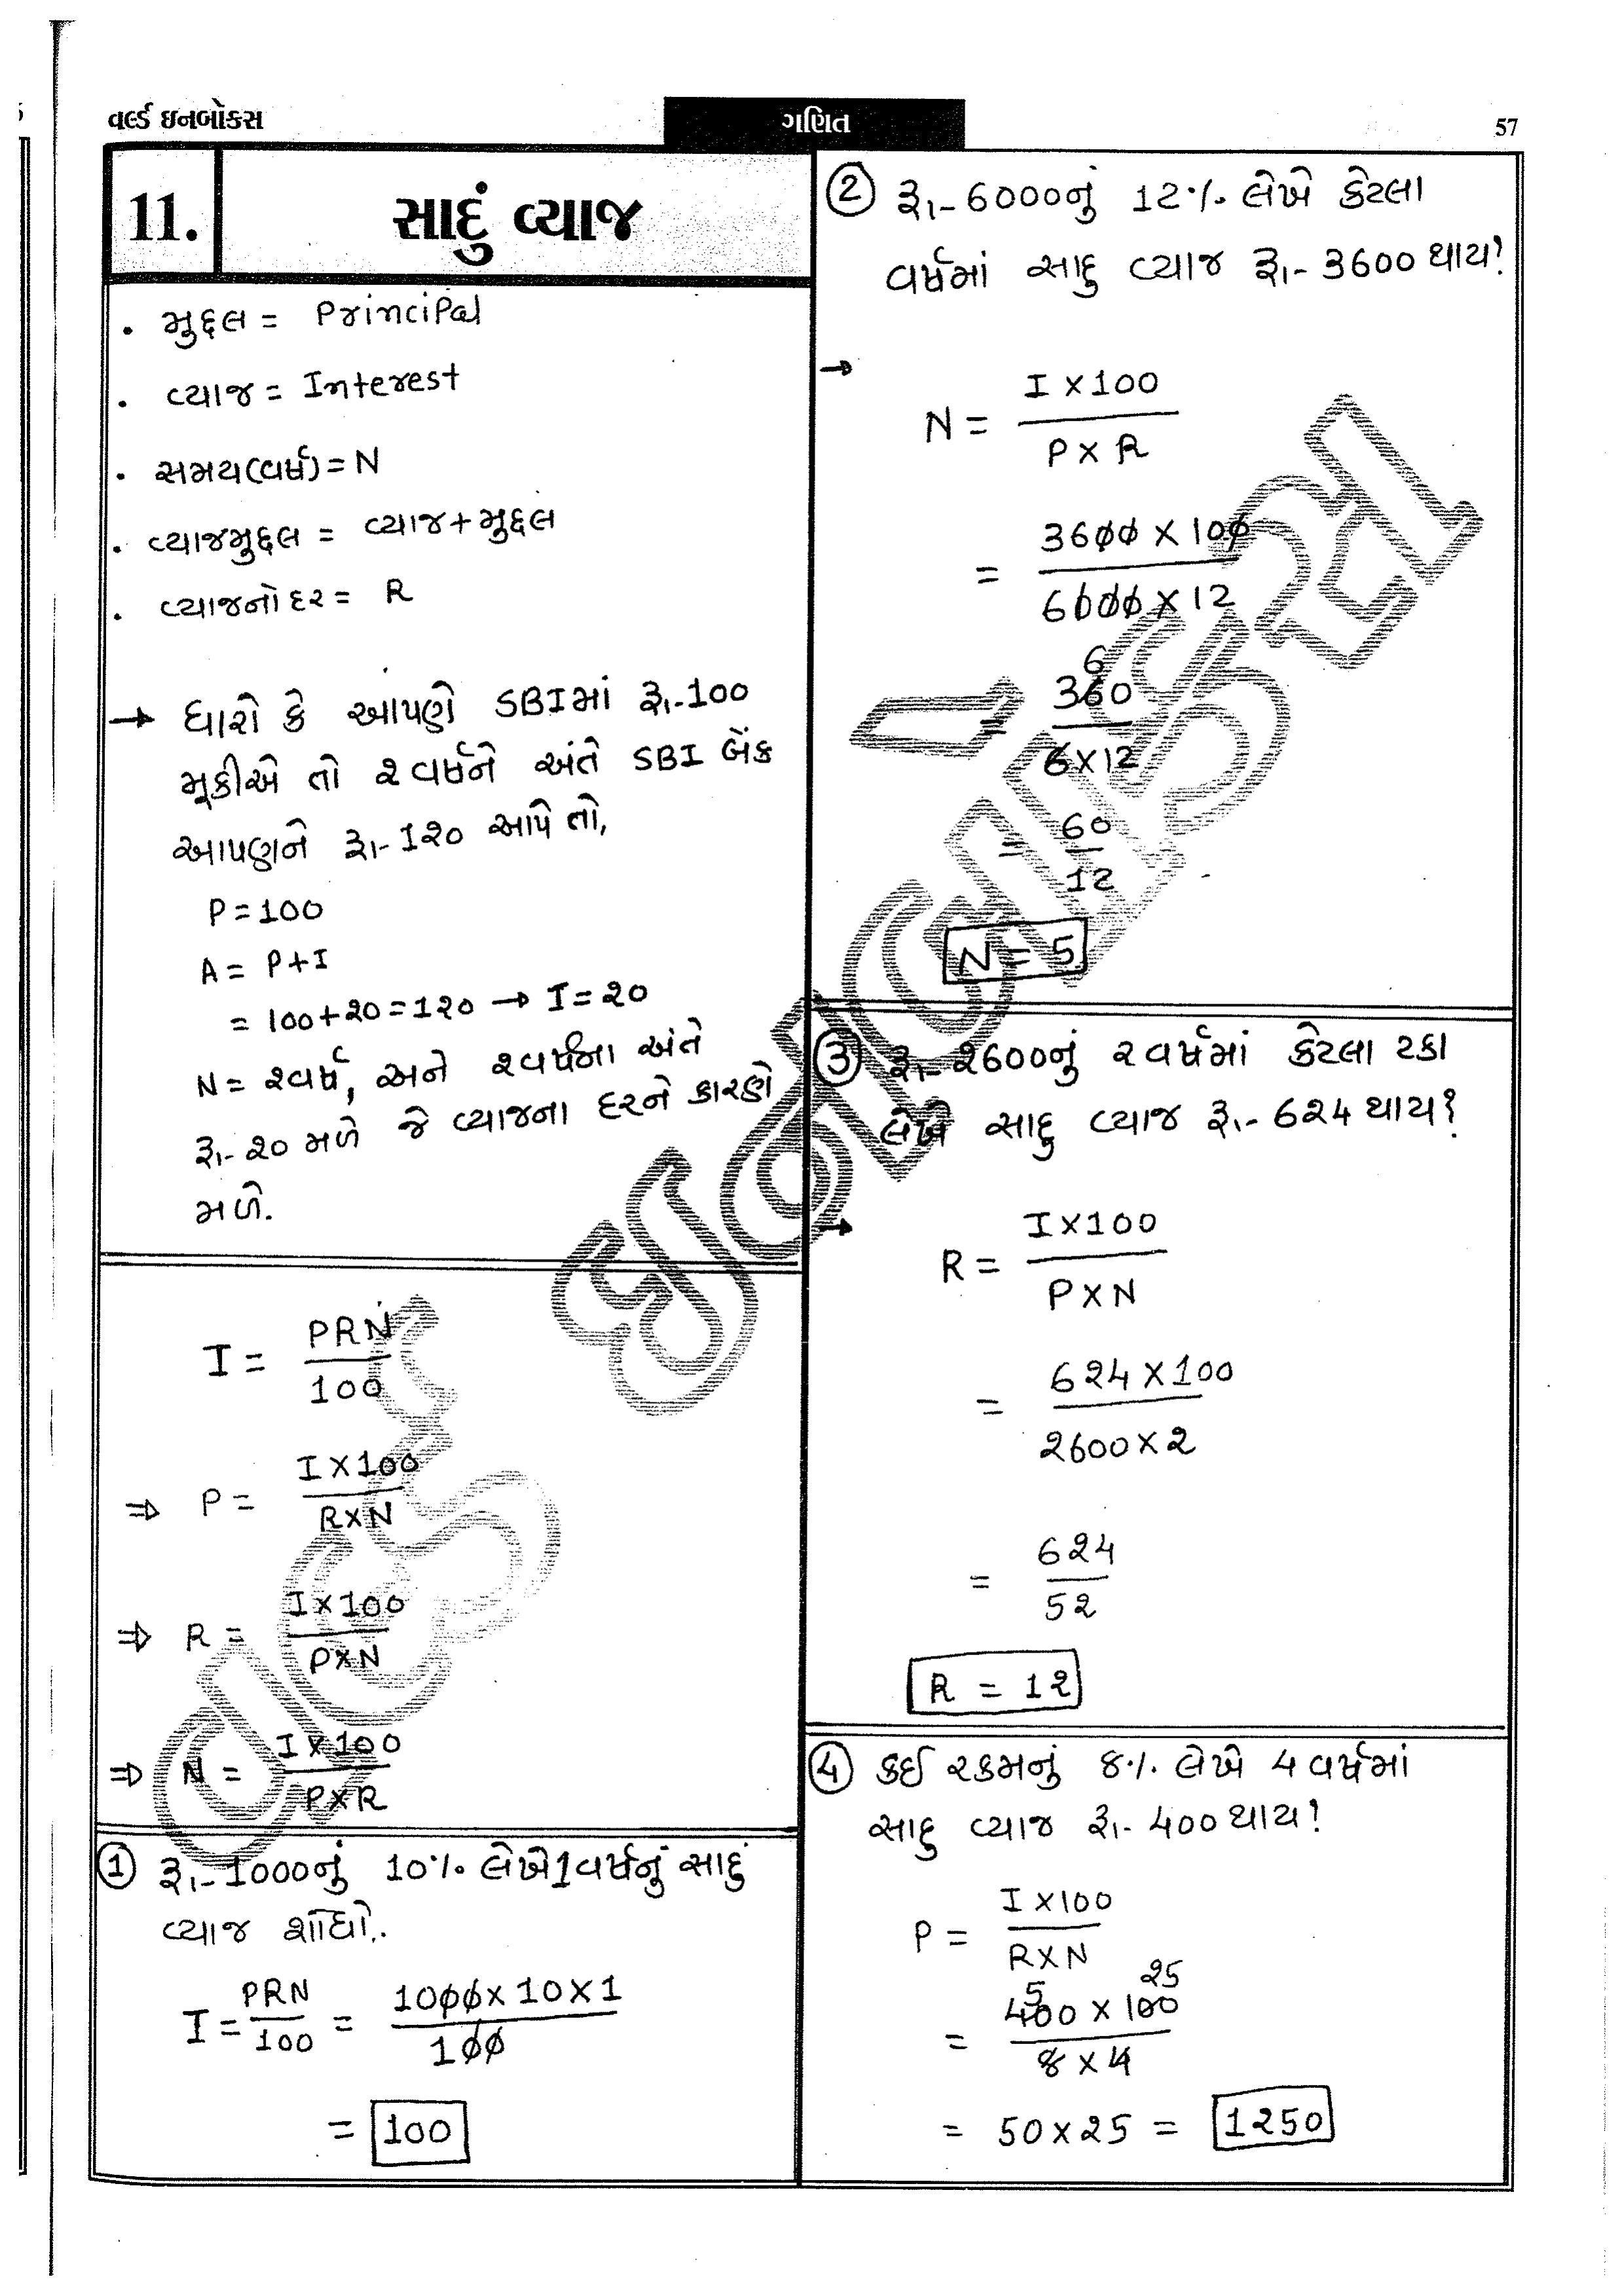 વર્લ્ડ ઇનબોક્સ
ગણિત
57
11.
સાદું વ્યાજ
• મુદ્દલ = Principal
• વ્યાજ = Interest
• સમય(વર્ષ) = N
• વ્યાજમુદ્દલ = વ્યાજ+મુદ્દલ
• વ્યાજનો દર = R
→ ધારો કે આપણે SBIમાં રૂા.-100
મૂકીએ તો ૨ વર્ષને અંતે SBI બેંક
આપણને રૂા.-1૨0 આપે તો,
P = 100
A = P+I
= 100+૨0 = 1૨0 → I = ૨0
N = ૨વર્ષ, અને ૨વર્ષના અંતે
રૂા.-૨0 મળે જે વ્યાજના દરને કારણે
મળે.
I = PRN
100
⇒ P = I X 100
RXN
⇒ R = I X 100
PXN
⇒ N = I X 100
PXR
① રૂા.-1000નું 10% લેખે 1 વર્ષનું સાદું
વ્યાજ શોધો.
I = PRN = 1000 x 10 x 1
100 100
= 100
② રૂા.-6000નું 12% લેખે કેટલા
વર્ષમાં સાદુ વ્યાજ રૂા.- 3600 થાય?
→
N = I X 100
P X R
= 3600 X 100
6000 X 12
6
= 360
6X12
= 60
12
N = 5
③ રૂા.-૨600નું ૨ વર્ષમાં કેટલા ટકા
લેખે સાદુ વ્યાજ રૂા.- 6૨4 થાય?
→
R = I X 100
P X N
= 6૨4 X 100
૨600 X ૨
= 6૨4
5૨
R = 1૨
④ કઈ રકમનું 8% લેખે 4 વર્ષમાં
સાદુ વ્યાજ રૂા.- 400 થાય?
P = I X 100
RXN
5 ૨5
= 400 X 100
8 X 4
= 50 X ૨5 = 1૨50